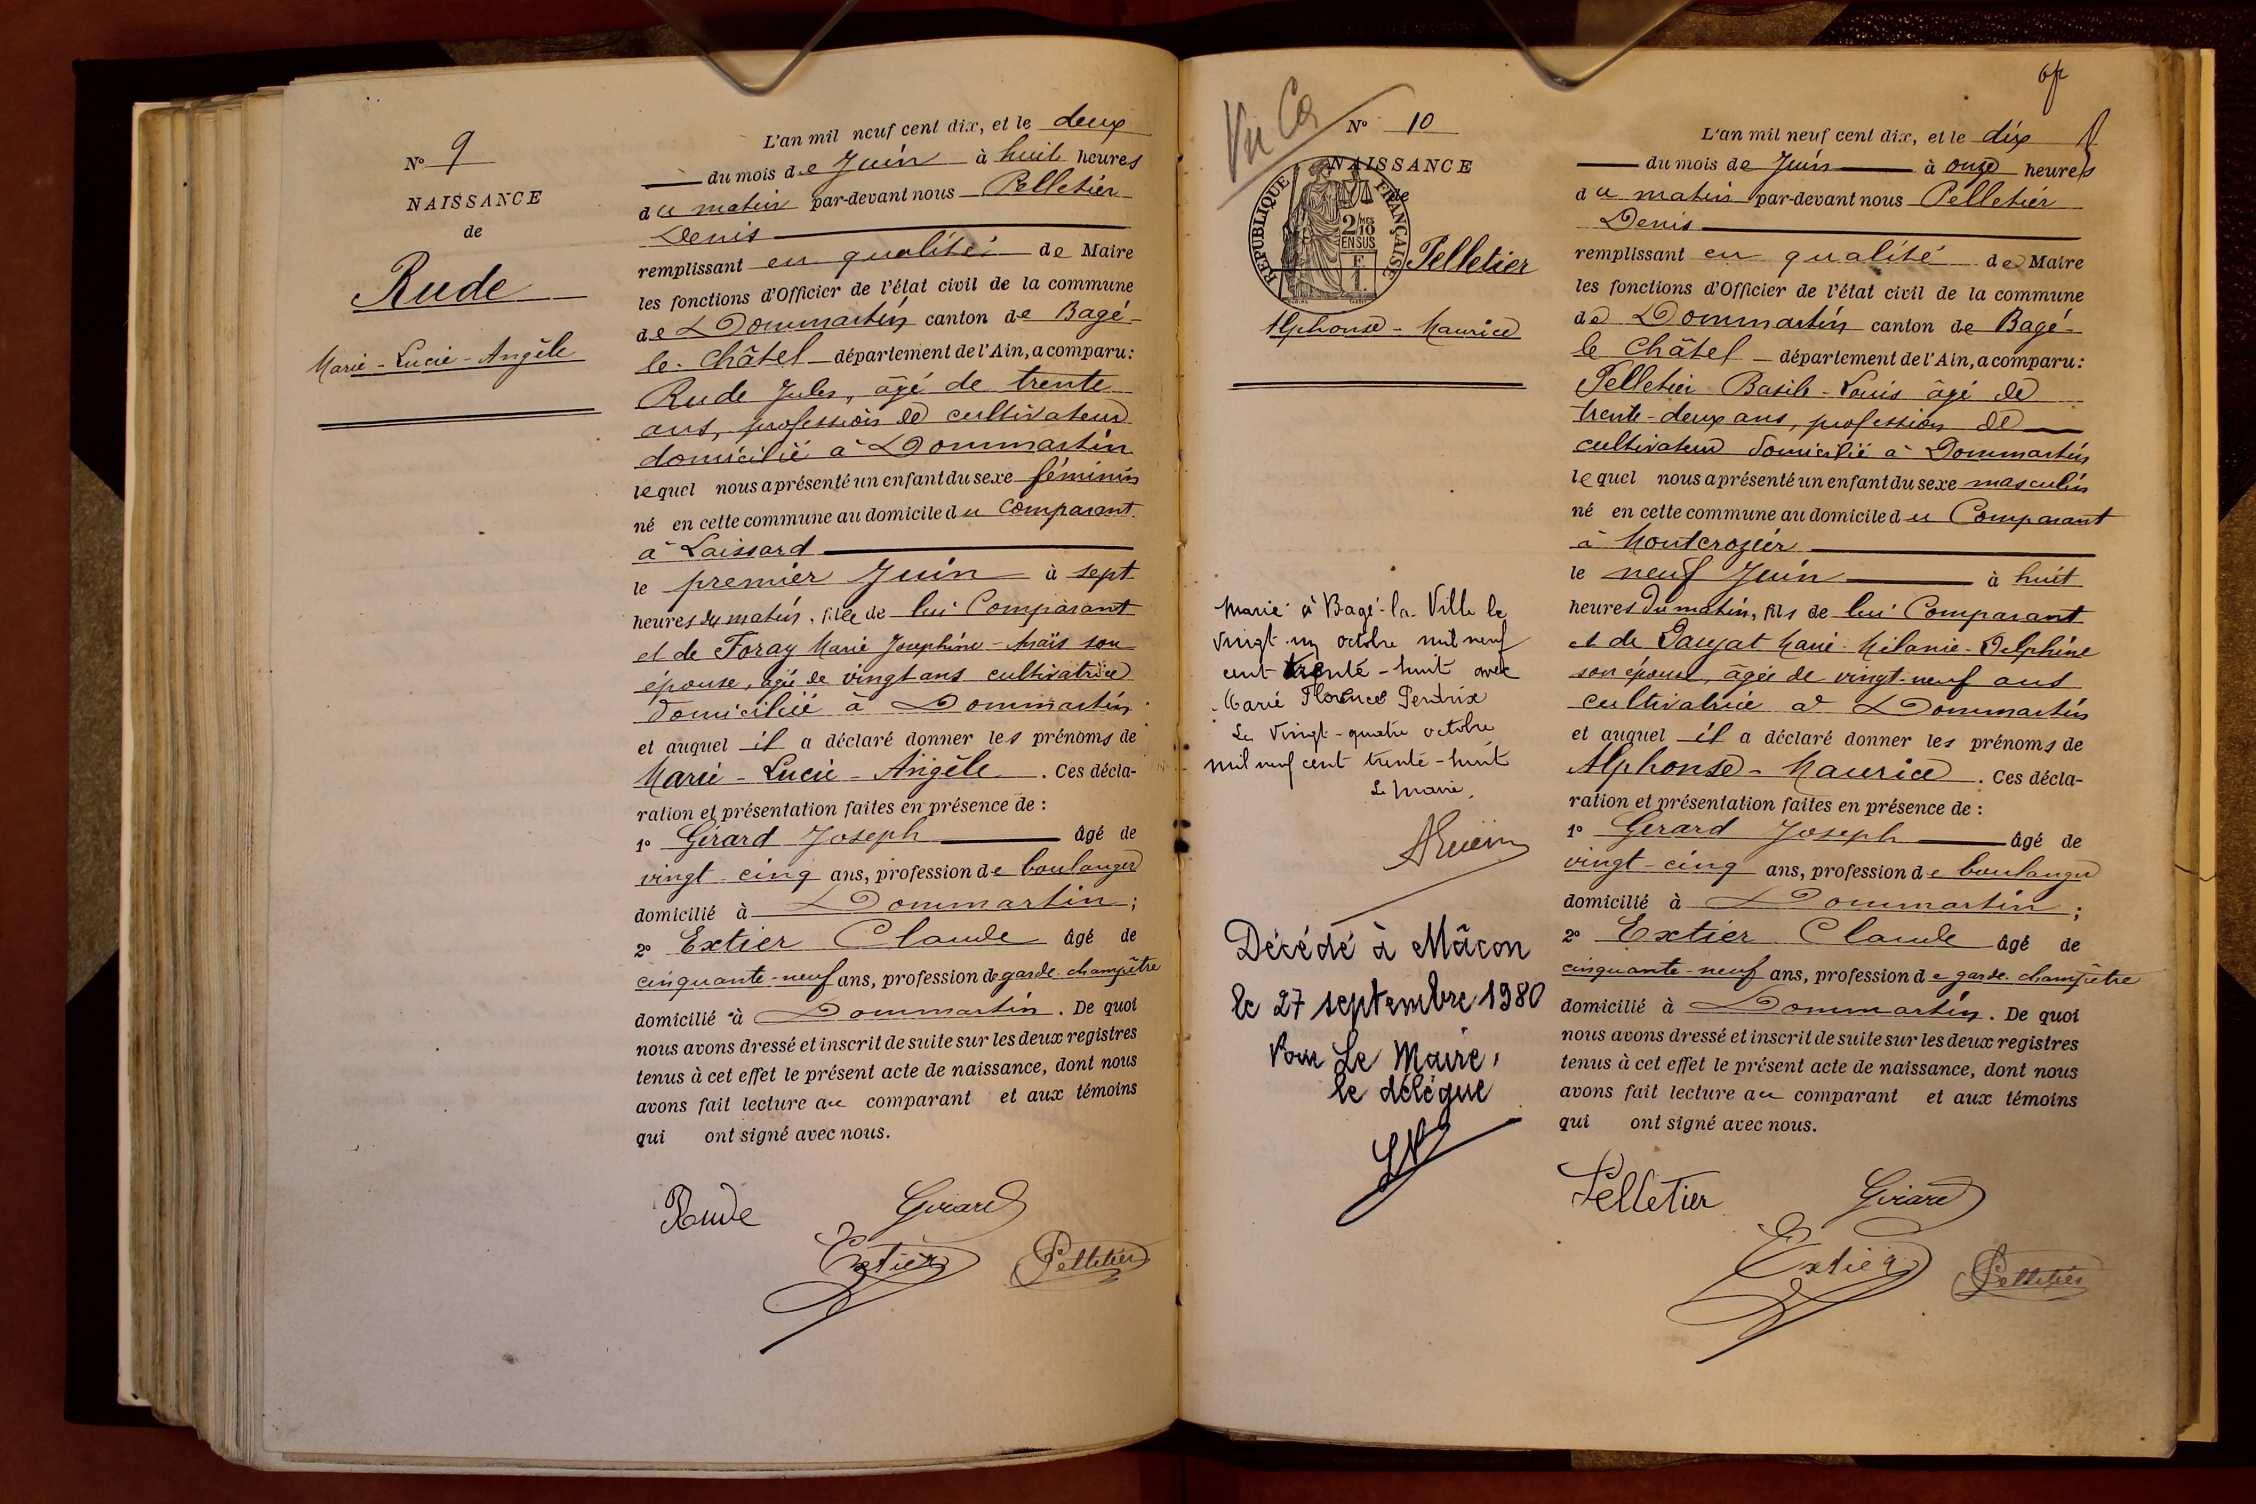 N° 9
NAISSANCE
de
Rude
Marie - Lucie - Angèle
L'an mil neuf cent dix, et le deux
du mois de Juin à huit heures
du matin par-devant nous Pelletier
Denis
remplissant en qualité de Maire
les fonctions d'Officier de l'état civil de la commune
de Dommartin canton de Bagé-
le-Châtel département de l'Ain, a comparu :
Rude Jules, âgé de trente
ans, profession de cultivateur
domicilié à Dommartin
lequel nous a présenté un enfant du sexe féminin
né en cette commune au domicile du Comparant
à Laissard
le premier Juin à sept
heures du matin, fille de lui Comparant
et de Foray Marie Joséphine - son
épouse, âgée de vingt ans cultivatrice
domiciliée à Dommartin
et auquel il a déclaré donner les prénoms de
Marie - Lucie - Angèle. Ces décla-
ration et présentation faites en présence de :
1° Gérard Joseph âgé de
vingt cinq ans, profession de boulanger
domicilié à Dommartin ;
2° Extier Claude âgé de
cinquante-neuf ans, profession de garde champêtre
domicilié à Dommartin. De quoi
nous avons dressé et inscrit de suite sur les deux registres
tenus à cet effet le présent acte de naissance, dont nous
avons fait lecture au comparant et aux témoins
qui ont signé avec nous.
Rude Girard
Extier Pelletier
6f
Vu
N° 10
NAISSANCE
de
RÉPUBLIQUE FRANÇAISE
2/10
EN SUS
Pelletier
Alphonse - Maurice
Marié à Bagé-la-Ville le
vingt-un octobre mil neuf
cent trente-huit avec
Marie Florence Pendrix
Le vingt-quatre octobre
mil neuf cent trente-huit
Le Maire,
Décédé à Mâcon
le 27 septembre 1980
Pour Le Maire,
le délégué
L'an mil neuf cent dix, et le dix
du mois de Juin à onze heures
du matin par-devant nous Pelletier
Denis
remplissant en qualité de Maire
les fonctions d'Officier de l'état civil de la commune
de Dommartin canton de Bagé-
le Châtel département de l'Ain, a comparu :
Pelletier Basile-Louis âgé de
trente-deux ans, profession de
cultivateur domicilié à Dommartin
lequel nous a présenté un enfant du sexe masculin
né en cette commune au domicile du Comparant
à Montcrozier
le neuf Juin à huit
heures du matin, fils de lui Comparant
et de Paujat Marie-Mélanie-Delphine
son épouse, âgée de vingt-neuf ans
cultivatrice à Dommartin
et auquel il a déclaré donner les prénoms de
Alphonse - Maurice. Ces décla-
ration et présentation faites en présence de :
1° Gerard Joseph âgé de
vingt-cinq ans, profession de boulanger
domicilié à Dommartin ;
2° Extier Claude âgé de
cinquante-neuf ans, profession de garde champêtre
domicilié à Dommartin. De quoi
nous avons dressé et inscrit de suite sur les deux registres
tenus à cet effet le présent acte de naissance, dont nous
avons fait lecture au comparant et aux témoins
qui ont signé avec nous.
Pelletier Girard
Extier Pelletier